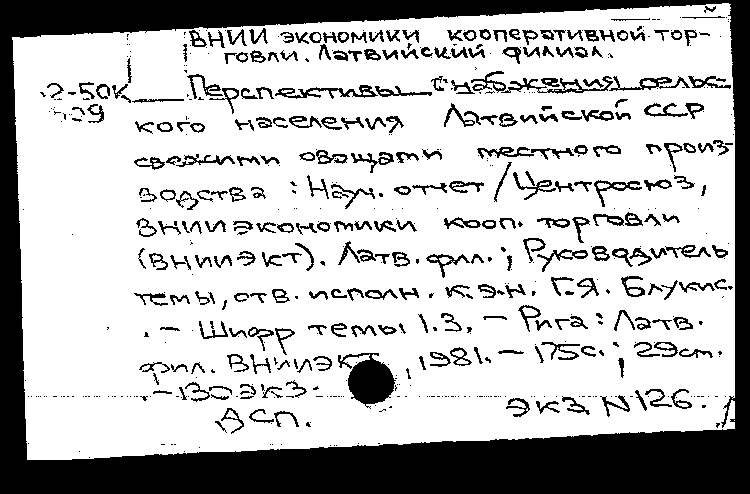 ВНИИ экономики кооперативной тор-
говли. Латвийский филиал.
2-50К Перспективы снабжения сельс-
кого населения Латвийской ССР
свежими овощами местного произ-
водства : Науч. отчет / Центросоюз,
ВНИИ экономики кооп. торговли
(ВНИИЭКТ). Латв. фил. ; Руководитель
темы, отв. исполн. к.э.н. Г.Я. Блукис.
. – Шифр темы 1.3. – Рига : Латв.
фил. ВНИИЭКТ, 1981. – 175с. ; 29см.
. – 130 экз.
ДСП. экз. N 126.